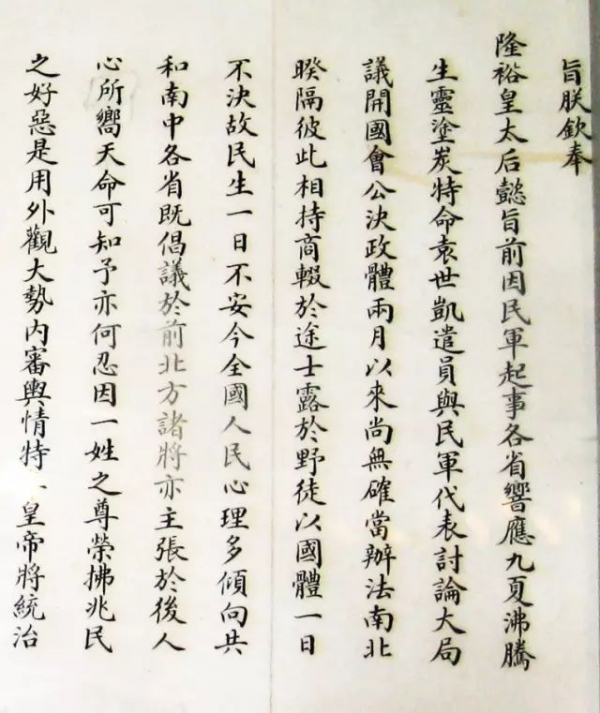 旨朕欽奉
隆裕皇太后懿旨前因民軍起事各省響應九夏沸騰
生靈塗炭特命袁世凱遣員與民軍代表討論大局
議開國會公決政體兩月以來尚無確當辦法南北
暌隔彼此相持商輟於途士露於野徒以國體一日
不決故民生一日不安今全國人民心理多傾向共
和南中各省既倡議於前北方諸將亦主張於後人
心所嚮天命可知予亦何忍因一姓之尊榮拂兆民
之好惡是用外觀大勢內審輿情特皇帝將統治